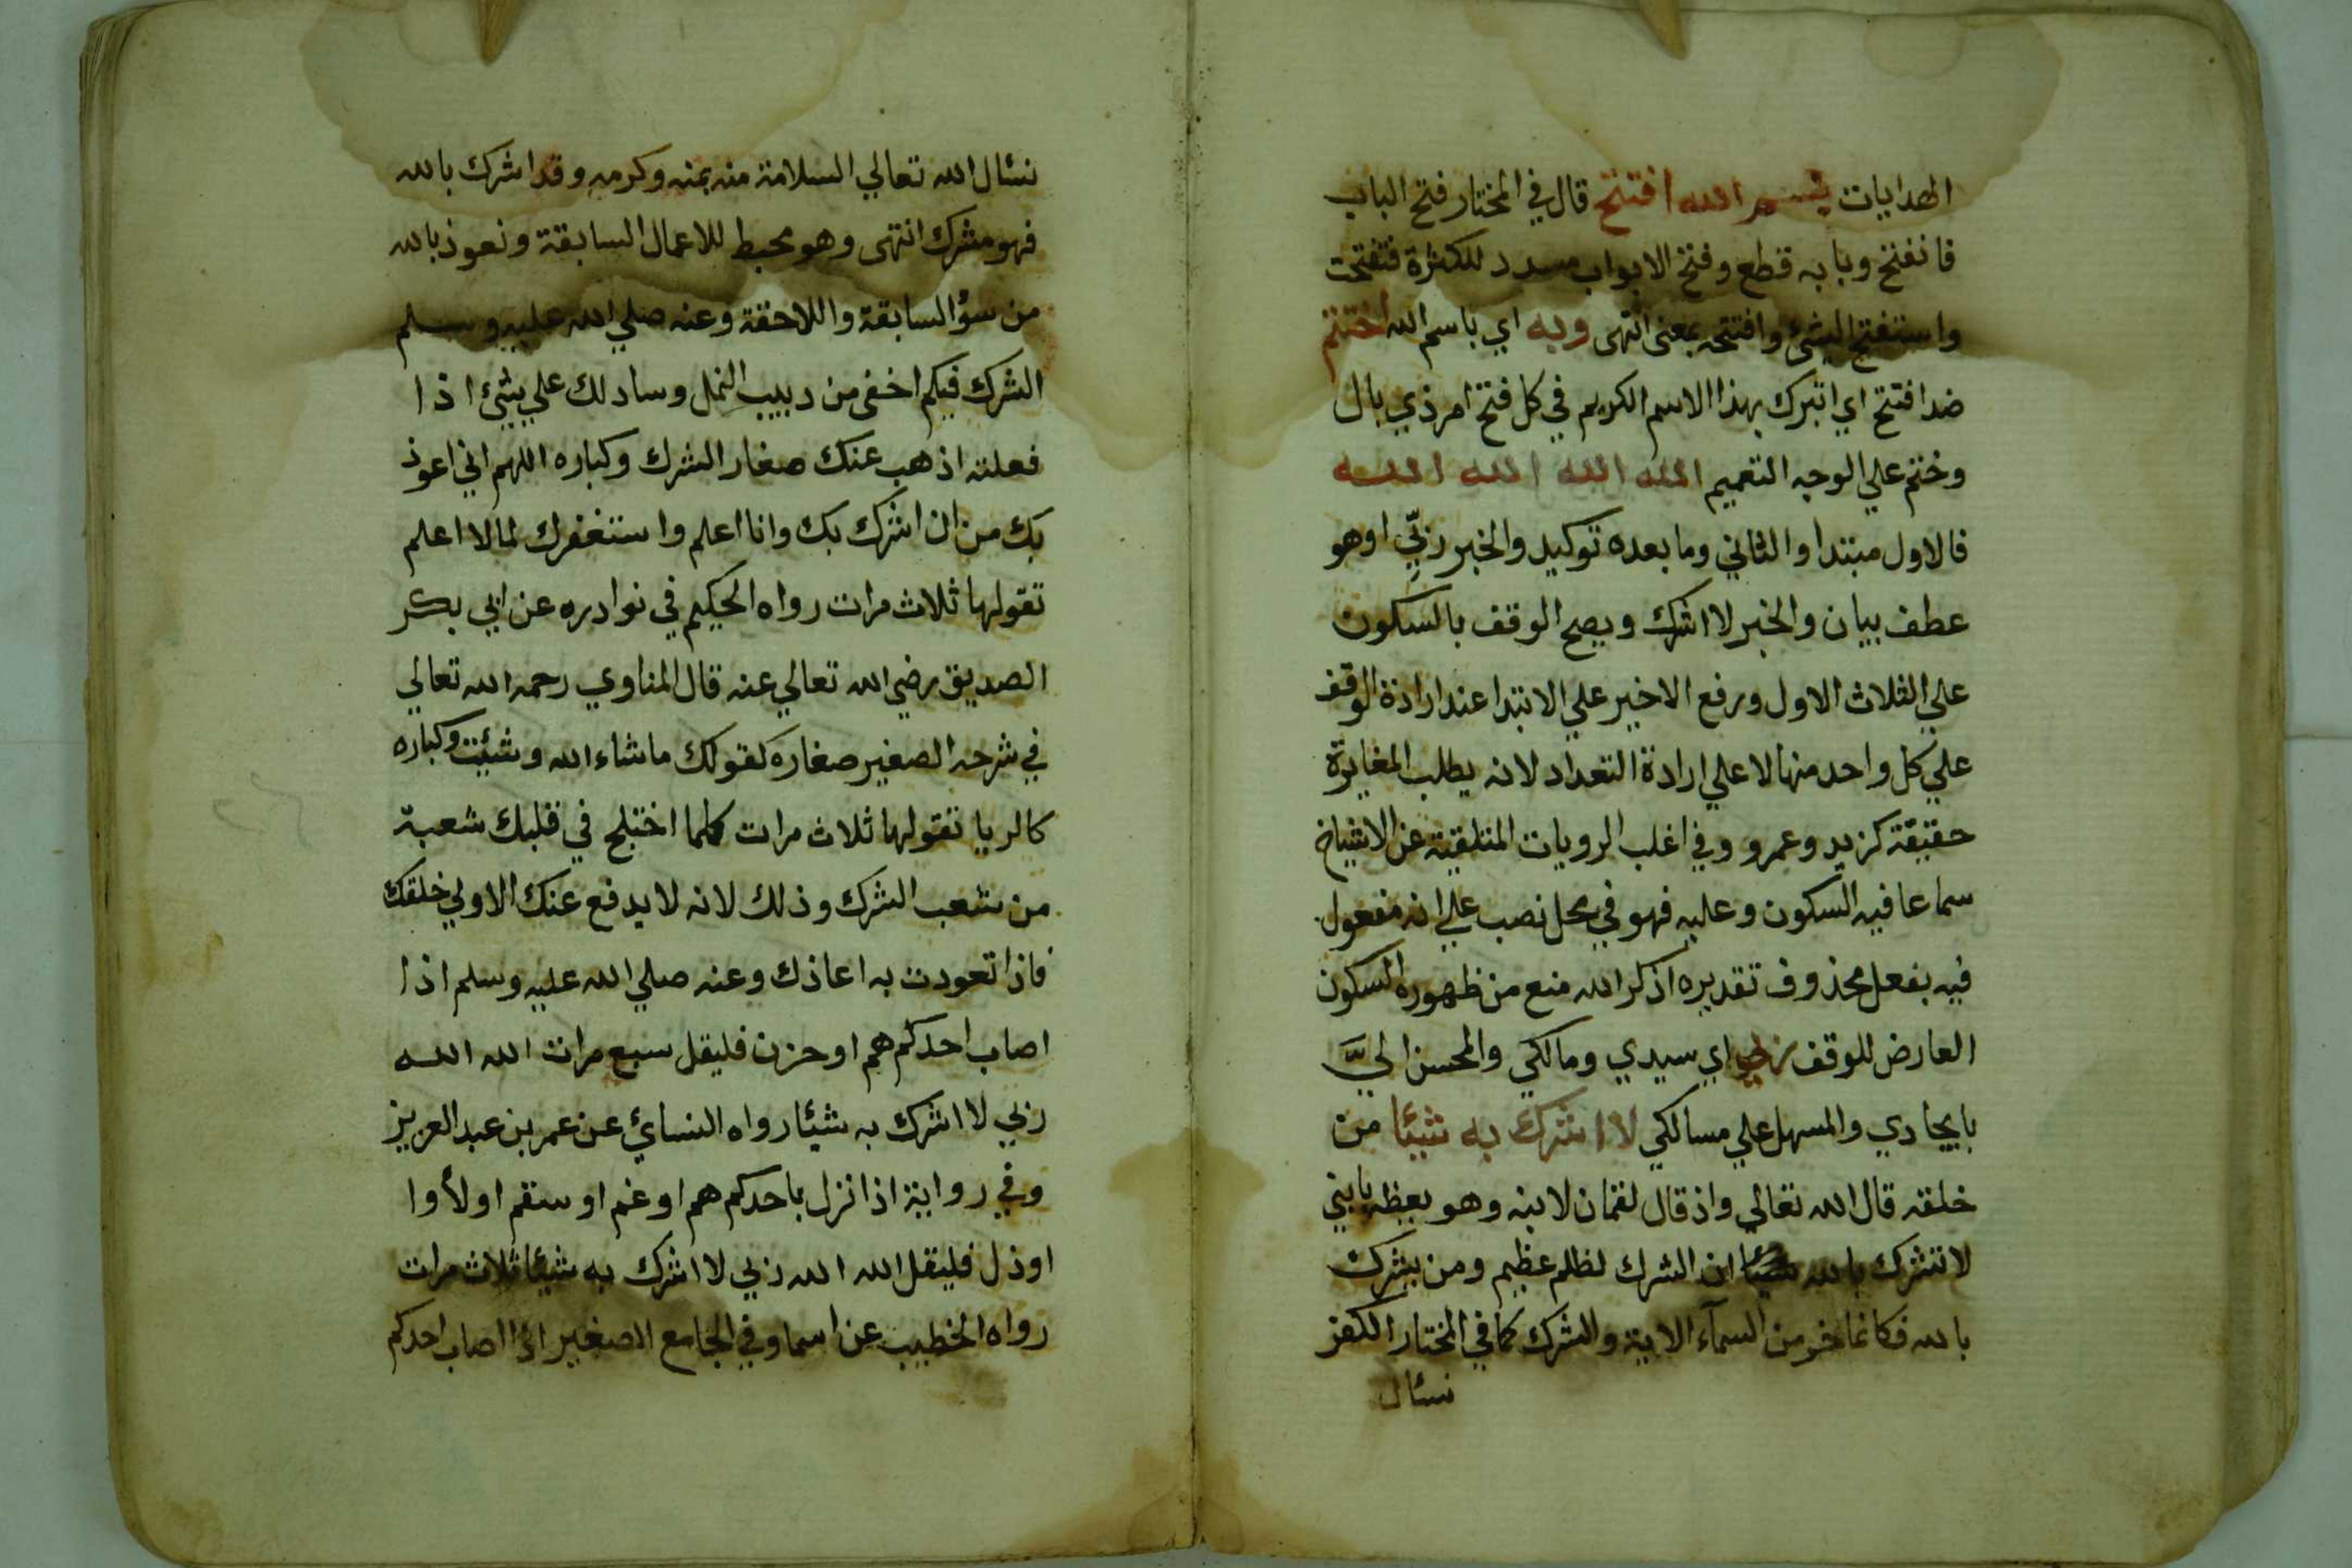 الهدايات بسم الله افتتح قال في المختار فتح الباب
فانفتح وبابه قطع وفتح الابواب مسدد للكثرة فتفتحت
واستفتح الشئ وافتتحه بمعنى انتهى وبه اي باسم الله اختتم
ضد افتتح اي اتبرك بهذا الاسم الكريم في كل فتح امر ذي بال
وختم علي الوجه التعميم الله الله الله الله
فالاول مبتدا والثاني وما بعده توكيد والخبر ربّي اوهو
عطف بيان والخبر لا اشرك ويصح الوقف بالسكون
علي الثلاث الاول ورفع الاخير علي الابتدا عند ارادة الوقف
علي كل واحد منها لا علي ارادة التعداد لانه يطلب المغايرة
حقيقة كزيد وعمرو وفي اغلب الرويات المتلقية عن الاشياخ
سماعا فيه السكون وعليه فهو في محل نصب علي انه مفعول
فيه بفعل محذوف تقديره اذكر الله منع من ظهوره السكون
العارض للوقف ربي اي سيدي ومالكي والمحسن اليَّ
بايجادي والمسهل علي مسالكي لا اشرك به شيئا من
خلقه قال الله تعالي واذ قال لقمان لابنه وهو يعظه يابني
لا تشرك بالله ان الشرك لظلم عظيم ومن يشرك
بالله فكانما خر من السمآء الاية والشرك كما في المختار الكفر
نسئال
نسئال الله تعالي السلامة منه بمنه وكرمه وقد اشرك بالله
فهو مشرك انتهى وهو محبط للاعمال السابقة ونعوذ بالله
من سؤ السابقة واللاحقة وعنه صلي الله عليه وسلم
الشرك فيكم اخفى من دبيب النمل وسادلك علي شئ اذا
فعلته اذهب عنك صغار الشرك وكباره اللهم اني اعوذ
بك من ان اشرك بك وانا اعلم واستغفرك لما لا اعلم
تقولها ثلاث مرات رواه الحكيم في نوادره عن ابي بكر
الصديق رضي الله تعالي عنه قال المناوي رحمه الله تعالي
في شرحه الصغير صغاره كقولك ما شاء الله وشئت وكباره
كالريا تقولها ثلاث مرات كلما اختلج في قلبك شعبة
من شعب الشرك وذلك لانه لا يدفع عنك الا ولي خلقك
فاذا تعوذت به اعاذك وعنه صلي الله عليه وسلم اذا
اصاب احدكم هم او حزن فليقل سبع مرات الله الله
ربي لا اشرك به شيئا رواه النسائ عن عمر بن عبد العزيز
وفي رواية اذا نزل باحدكم هم او غم او سقم او لأوا
او ذل فليقل الله الله ربي لا اشرك به شيئا ثلاث مرات
رواه الخطيب عن اسما وفي الجامع الصغير اذا اصاب احدكم